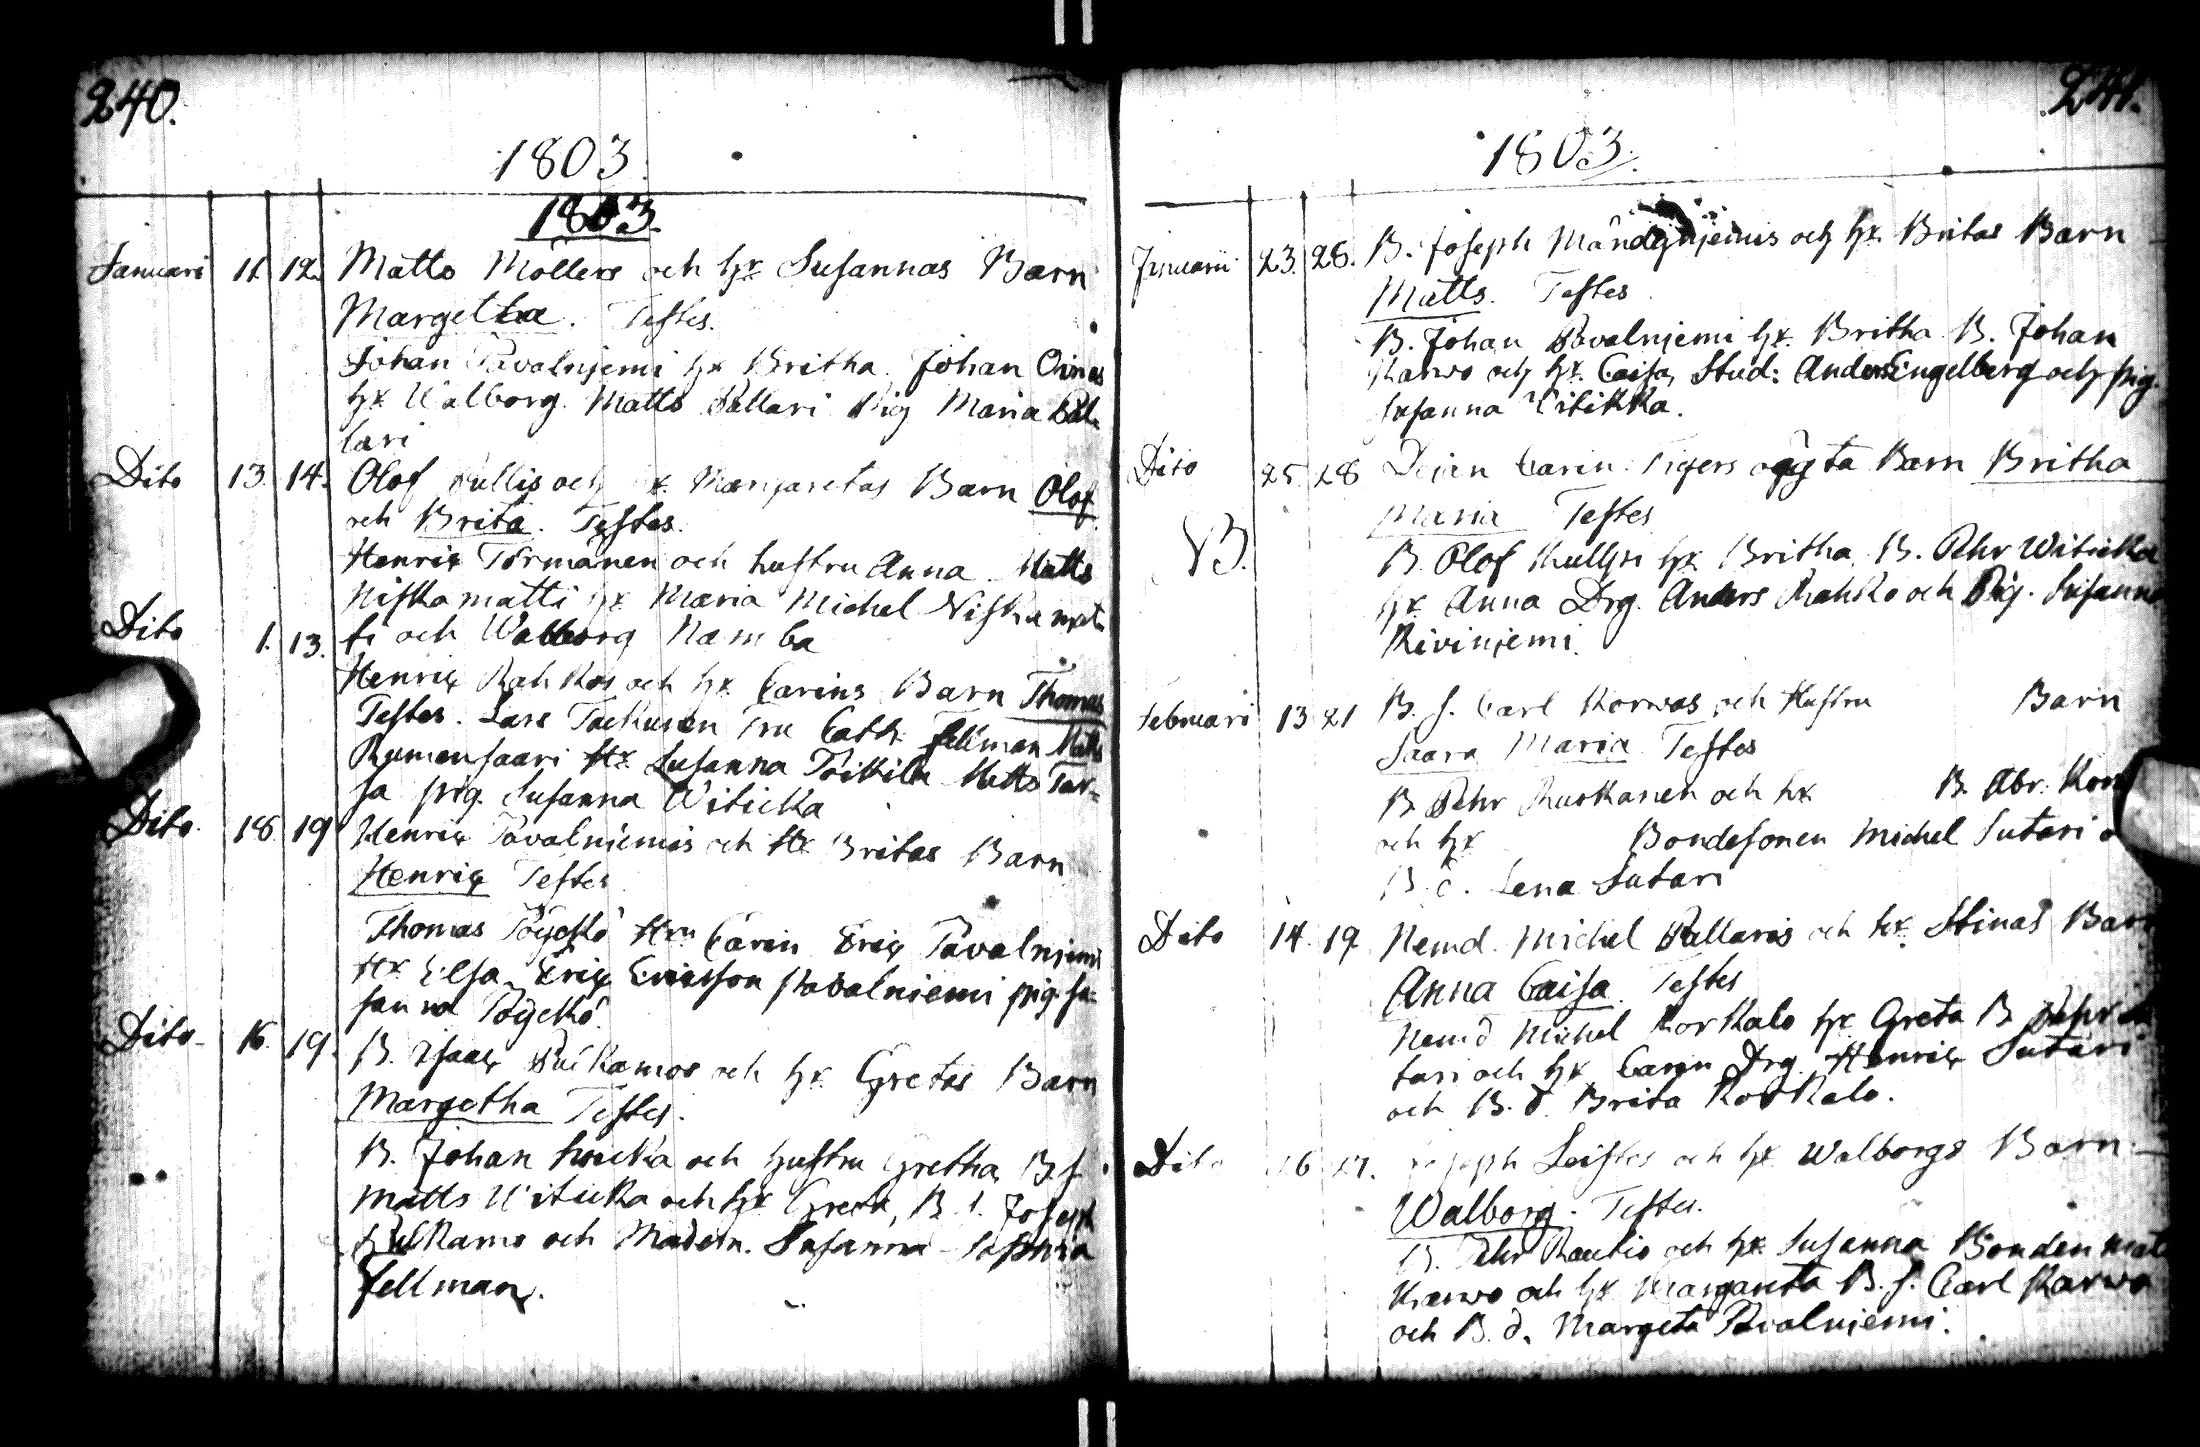 240.
1803.
1803.
Januari 11. 12. Matts Möllers och hr Susannas Barn
Margetha. Testes.
Johan Pavalnjemi hr Britha. Johan
hr Walborg. Matts Pallari Pig Maria Pal-
lari
Dito 13. 14. Olof och hr. Margaretas Barn Olof
och Brita. Testes.
Henric Törmänen och hustru Anna. Matts
Niskamatti hr Maria Michel Niskamat-
ti och Walborg Namba
Dito 1. 13.
Henric Rahkos och hr. Carins Barn Thomas
Testes. Lars Cath. Fellman Matts
Rumensaari Hr Susanna Poikila Matts
sa pig. Susanna Witicka
Dito. 18. 19 Henric Pavalniemis och Hr Britas Barn
Henric Testes
Thomas Pöyckö Hru Carin Eric Pavalnjemi
Hr Elsa. Eric Ericsson Pavalniemi pig. Su-
sanna Pöyckö.
Dito 16. 19. B. Isaac Pulkamos och hr. Gretas Barn
Margetha Testes.
B. Johan och hustru Gretha, B. s.
Matts Witicka och hr Greta, B. s. Joseph
Pulkamo och Madem. Susanna Sophia
Fellman.
241.
1803.
Januarii 23. 28. B. Joseph och hr. Britas Barn
Matts. Testes
B. Johan Pavalnjemi hr. Britha B. Johan
Karvo och hr. Caisa, Stud: Anders Engelberg och pig.
Susanna Witikka.
Dito 25. 28 Pigan Carin Tigers oägta Barn Britha
Maria Testes
B. Olof hr. Britha. B. Pehr Witicka
hr Anna Drg. Anders Rahko och Pig. Susanna
Kivinjemi.
Februari 13 21 B. s. Carl Korwas och Hustru Barn
Saara Maria Testes
B. Pehr Ruokanen och hr B. Abr.
och hr Bondesonen Michel Sutari
B. d. Lena Sutari
Dito 14. 19 Nemd. Michel Pallaris och hr. Stinas Barn
Anna Caisa. Testes
Nemd Michel Korkalo hr Greta B Pehr
tari och hr Carin Drg. Henric Sutari
och B. d. Brita Korkalo.
Dito 16 27. Joseph Leistes och hr Walborgs Barn
Walborg. Testes.
B. Pehr Rautio och hr Susanna Bonden
Karvo och hr Margareta B. s. Carl Karvo
och B. d. Margeta Pavalniemi.